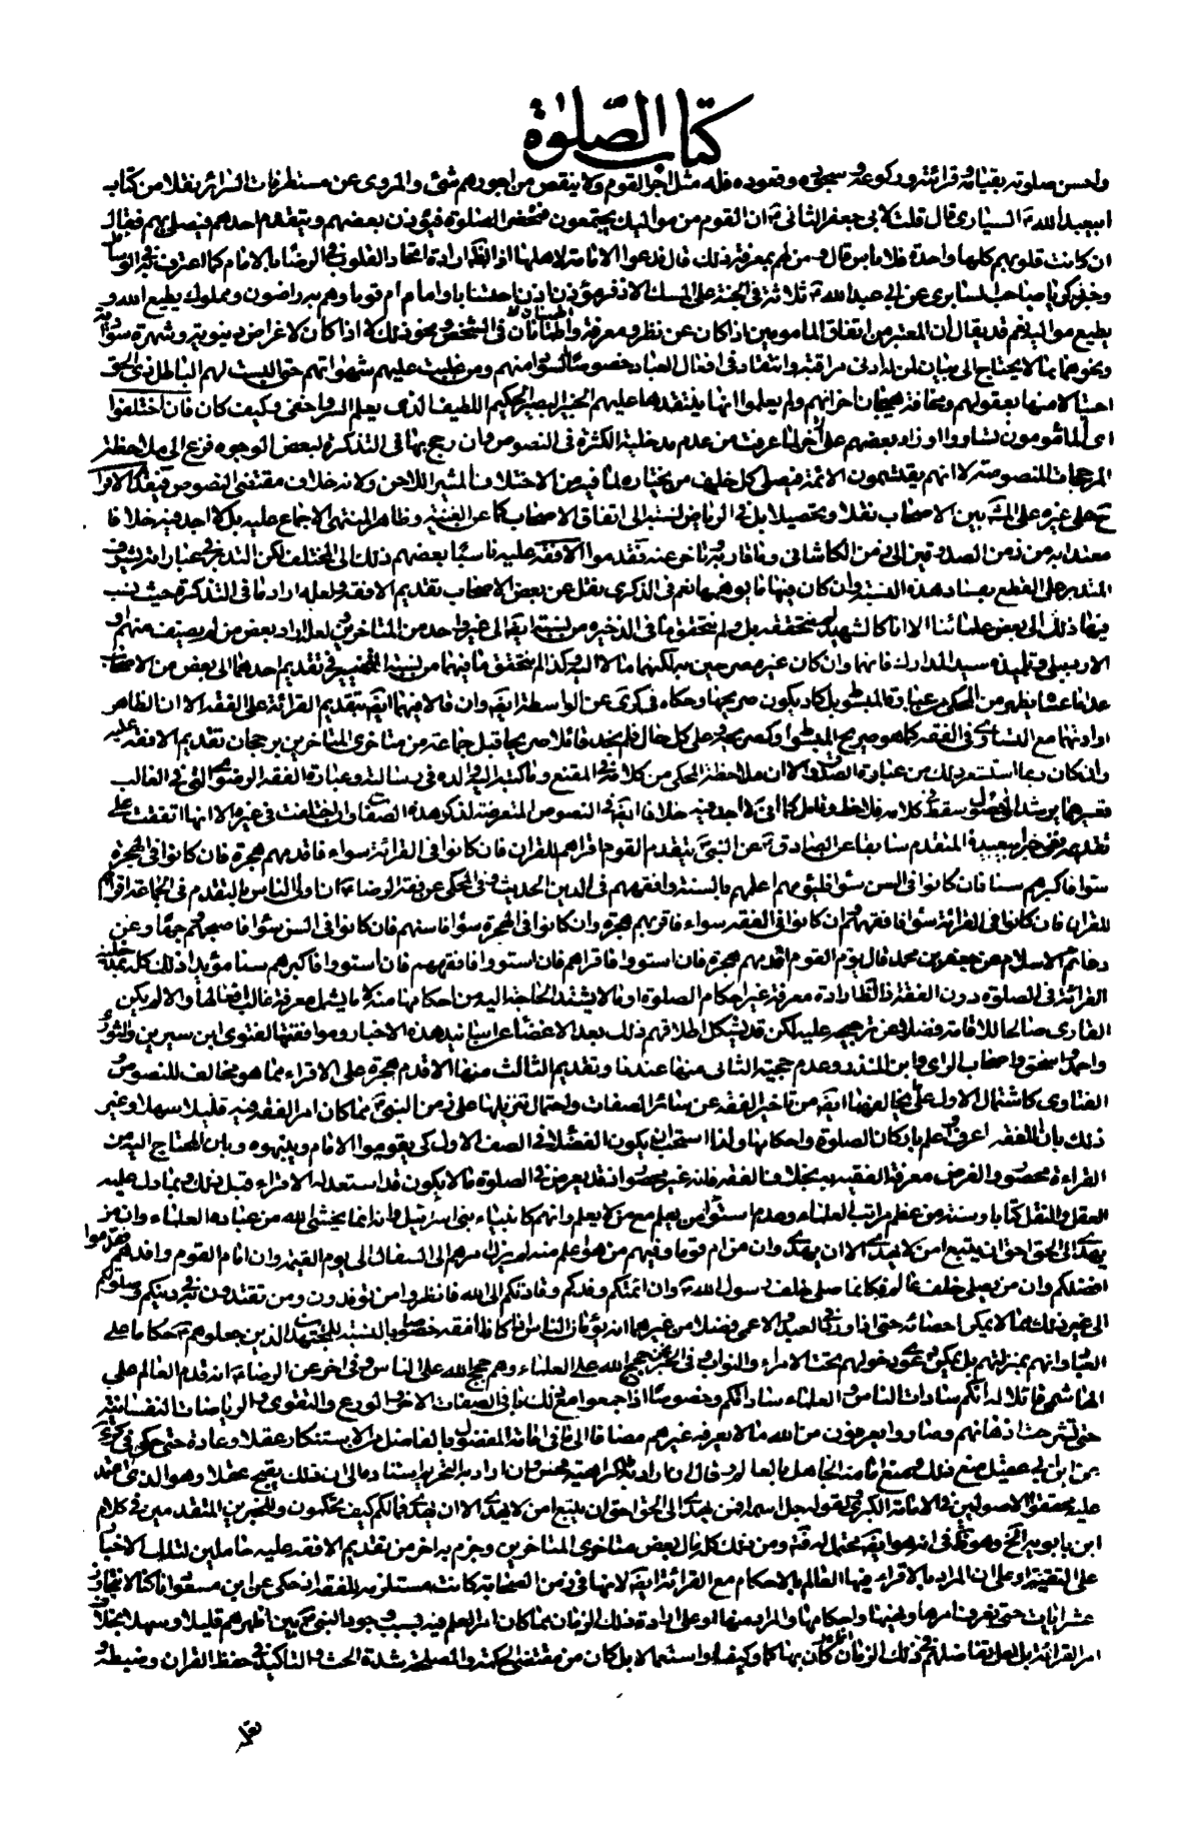 كتاب الصلوة
واحسن صلوته بقيامه وقرائته وركوعه وسجوده وقعوده فله مثل اجر القوم ولا ينقص من اجورهم شئ والمروى عن مستطرفات السرائر نقلا من كتاب
ابيعبد الله السيارى قال قلت لابى جعفر الثانى ان القوم من مواليك يجتمعون فتحضر الصلوة فيؤذن بعضهم ويتقدم احدهم فيصلى بهم فقال
ان كانت قلوبهم كلها واحدة فلا باس قال ومن لهم بمعرفة ذلك قال فدعوا الامامة لاهلها اذ الظ ارادة اتحاد القلوب فى الرضا بالامام كما اعترف به فى
وخبر زكريا صاحب السابرى عن ابى عبد الله ثلاثة فى الجنة على المسك الاذفر مؤذن اذن احتسابا وامام ام قوما وهم به راضون ومملوك يطيع الله و
يطيع مواليه نعم قد يقال ان المعتبر من اتفاق المامومين اذا كان عن نظر ومعرفة واطمئنان فى الشخص ونحو ذلك لا اذا كان لاغراض دنيوية وشهرة
ونحوهما مما لا يحتاج الى بيان لمن له ادنى مراقبة وانتقاد فى افعال العباد خصوصا السواد منهم ومن غلبت عليهم شهواتهم حتى البست لهم الباطل بزى الحق
اى المأمومون تشاوروا وزاد بعضهم على لما عرفت من عدم مدخلية الكثرة فى النصوص فان رجح بها فى التذكرة لبعض الوجوه فزع الى ملاحظة
المرجحات المنصوصة لا انهم يقتسمون الائمة فيصلى كل خلف من يختاره لما فيه من الاختلاف المثير للاحن ولانه خلاف مقتضى النصوص فيقدم الاقرا
ح على غيره على المش بين الاصحاب نقلا وتحصيلا بل فى الرياض نسبته الى اتفاق الاصحاب كما عن الغنية وظاهر المنتهى الاجماع عليه بل لا اجد فيه خلافا
معتدا به من زمن الصدوقين الى زمن الكاشانى وما قاربه او تاخر عنه فقدموا الافقه عليه ناسبا بعضهم ذلك الى المختلف لكن التدبر فى عبارته يشرف
المتدبر على القطع بفساد هذه النسبة وان كان فيها ما يوهمها نعم فى الذكرى نقل عن بعض الاصحاب تقديم الافقه ولعله اراد ما فى التذكرة حيث نسب
فيها ذلك الى بعض علمائنا الا انا كالشهيد لم نتحققه بل ولم نتحقق ما فى الذخيرة من نسبته ايضا الى غير واحد من المتاخرين ولعله اراد بعض من لم يصنف منهم او
الاردبيلى وتلميذه سيد المدارك فانهما وان كان غير مصرحين به لكنهما مالا اليه وكذا لم نتحقق ما فيهما من نسبة التخيير فى تقديم احدهما الى بعض من الاصحاب
عدا ما عساه يظهر من المحكى من عبارة المبسوط بل كاد يكون صريحها وحكاه فى كرى عن الواسطة ايضا وان قالا فيهما ايضا بتقديم القرائة على الفقه الا ان الظاهر
ارادتهما مع التساوى فى الفقه كما هو صريح المبسوط او كصريحه وعلى كل حال فلم نجد قائلا صريحا قبل جماعة من متاخرى المتاخرين برجحان تقديم الافقه عليه
تقديمه ففى خبر ابيعبيدة المتقدم سابقا عن الصادق عن النبى يتقدم القوم اقراهم للقران فان كانوا فى القرائة سواء فاقدمهم هجرة فان كانوا فى الهجرة
سواء فاكبرهم سنا فان كانوا فى السن سواء فليؤمهم اعلمهم بالسنة وافقههم فى الدين الحديث وفى المحكى عن فقه الرضا ان اولى الناس بالتقدم فى الجماعة اقراهم
للقران فان كانوا فى القرائة سواء فافقههم وان كانوا فى الفقه سواء فاقربهم هجرة وان كانوا فى الهجرة سواء فاسنهم فان كانوا فى السن سواء فاصبحهم وجها وعن
دعائم الاسلام عن جعفر بن محمد قال يؤم القوم اقدمهم هجرة فان استووا فاقراهم فان استووا فافقههم فان استووا فاكبرهم سنا مؤيدا ذلك كله
القرائة فى الصلوة دون الفقه اذ الظ ارادة معرفة غير احكام الصلوة او ما لا يشتد الحاجة اليه من احكامها منه لا ما يشمل معرفة غالب افعالها والا لم يكن
القارى صالحا للامامة فضلا عن ترجيحه عليه لكن قد يشكل اطلاقهم ذلك بعد الاغضاء عن اسانيد هذه الاخبار وموافقتها لفتوى ابن سيرين والثورى
واحمد واسحق واصحاب الراى وابن المنذر وعدم حجية الثانى منها عندنا وتقديم الثالث منها الاقدم هجرة على الاقراء مما هو مخالف للنصوص و
الفتاوى كاشتمال الاول على ما يخالفهما ايضا من تاخير الفقه عن سائر الصفات واحتمال تنزيلها على زمن النبى مما كان امر الفقه فيه قليلا سهلا وغير
ذلك بان الفقه اعرف باركان الصلوة واحكامها ولذا استحب ان يكون الفضلاء فى الصف الاول كى يقوموا الامام وينبهوه وبان المحتاج اليه من
القراءة محصور والفرض معرفة الفقيه به بخلاف الفقه فانه غير محصور اذ قد يعرض فى الصلوة ما لا يكون قد استعد له الاقراء قبل ذلك وبما دل عليه
العقل والنقل كتابا وسنة من عظم مراتب العلماء وعدم استواء من يعلم مع من لا يعلم وانهم كانبياء بنى اسرائيل وانه انما يخشى الله من عباده العلماء وان من
يهدى الى الحق احق ان يتبع امن لا يهدى الا ان يهدى وان من ام قوما وفيهم من هو اعلم منه لم يزل امرهم الى السفال الى يوم القيمة وان امام القوم وافدهم فقدموا
افضلكم وان من يصلى خلف عالم فكانما صلى خلف رسول الله وان ائمتكم وفدكم وقادتكم الى الله فانظروا من توفدون ومن تقتدون به فى دينكم وصلوتكم
الى غير ذلك مما لا يمكن احصائه حتى انه ورد فى العبد والاعمى فضلا من غيرهما انه يؤمان الناس اذا كانا افقه خصوصا بالنسبة للمجتهد الذين جعلوهم حكاما على
العباد وانهم بمنزلتهم بل يمكن دعوى دخولهم تحت الامراء والنواب وفى الخبر نحن حجج الله على العلماء وهم حجج الله على الناس وفى اخر عن الرضا انه قدم العالم على
الهاشمى قائلا له انكم سادات الناس والعلماء ساداتكم وخصوصا اذا جمعوا مع ذلك باقى الصفات الاخر والورع والتقوى والرياضات النفسانية
حتى انشرحت اذهانهم وصاروا يعرفون من الله ما لا يعرفه غيرهم مضافا الى ما فى امامة المفضول بالفاضل من الاستنكار عقلا وعادة حتى حكى فى كرى
عن ابن ابى عقيل منع ذلك ومنع امامة الجاهل بالعالم وقال ان اراد به الكراهية فحسن وان اراد به التحريم استنادا الى ان ذلك يقبح عقلا وهو الذى اعتمد
عليه محققو الاصوليين فى الامامة الكبرى لقوله جل اسمه افمن يهدى الى الحق احق ان يتبع امن لا يهدى الا ان يهدى فما لكم كيف تحكمون وللخبرين المتقدمين فى كلام
ابن بابويه الخ وهو ظ فى انه هوايضا محتمل له ومن ذلك كله مال بعض متاخرى المتاخرين وجزم به اخر من تقديم الافقه عليه حاملين لتلك الاخبار
على التقية او على ان المراد بالاقراء فيها العالم بالاحكام مع القرائة ايضا لانها فى زمن الصحابة كانت مستلزمة للفقه اذ حكى عن ابن مسعود انا كنا لا نتجاوز
عشر ايات حتى نعرف امرها ونهيها واحكامها والمراد منها او على ارادة ذلك الزمان مما كان امر العلم فيه بسبب وجود النبى بين اظهرهم قليلا وسهلا بخلاف
امر القرائة بل لعل تفاضلهم فى ذلك الزمان كان بها كما وكيفا واستعمالا بل كان من مقتضى الحكمة والمصلحة شدة الحث والتاكيد فى حفظ القران وضبطه